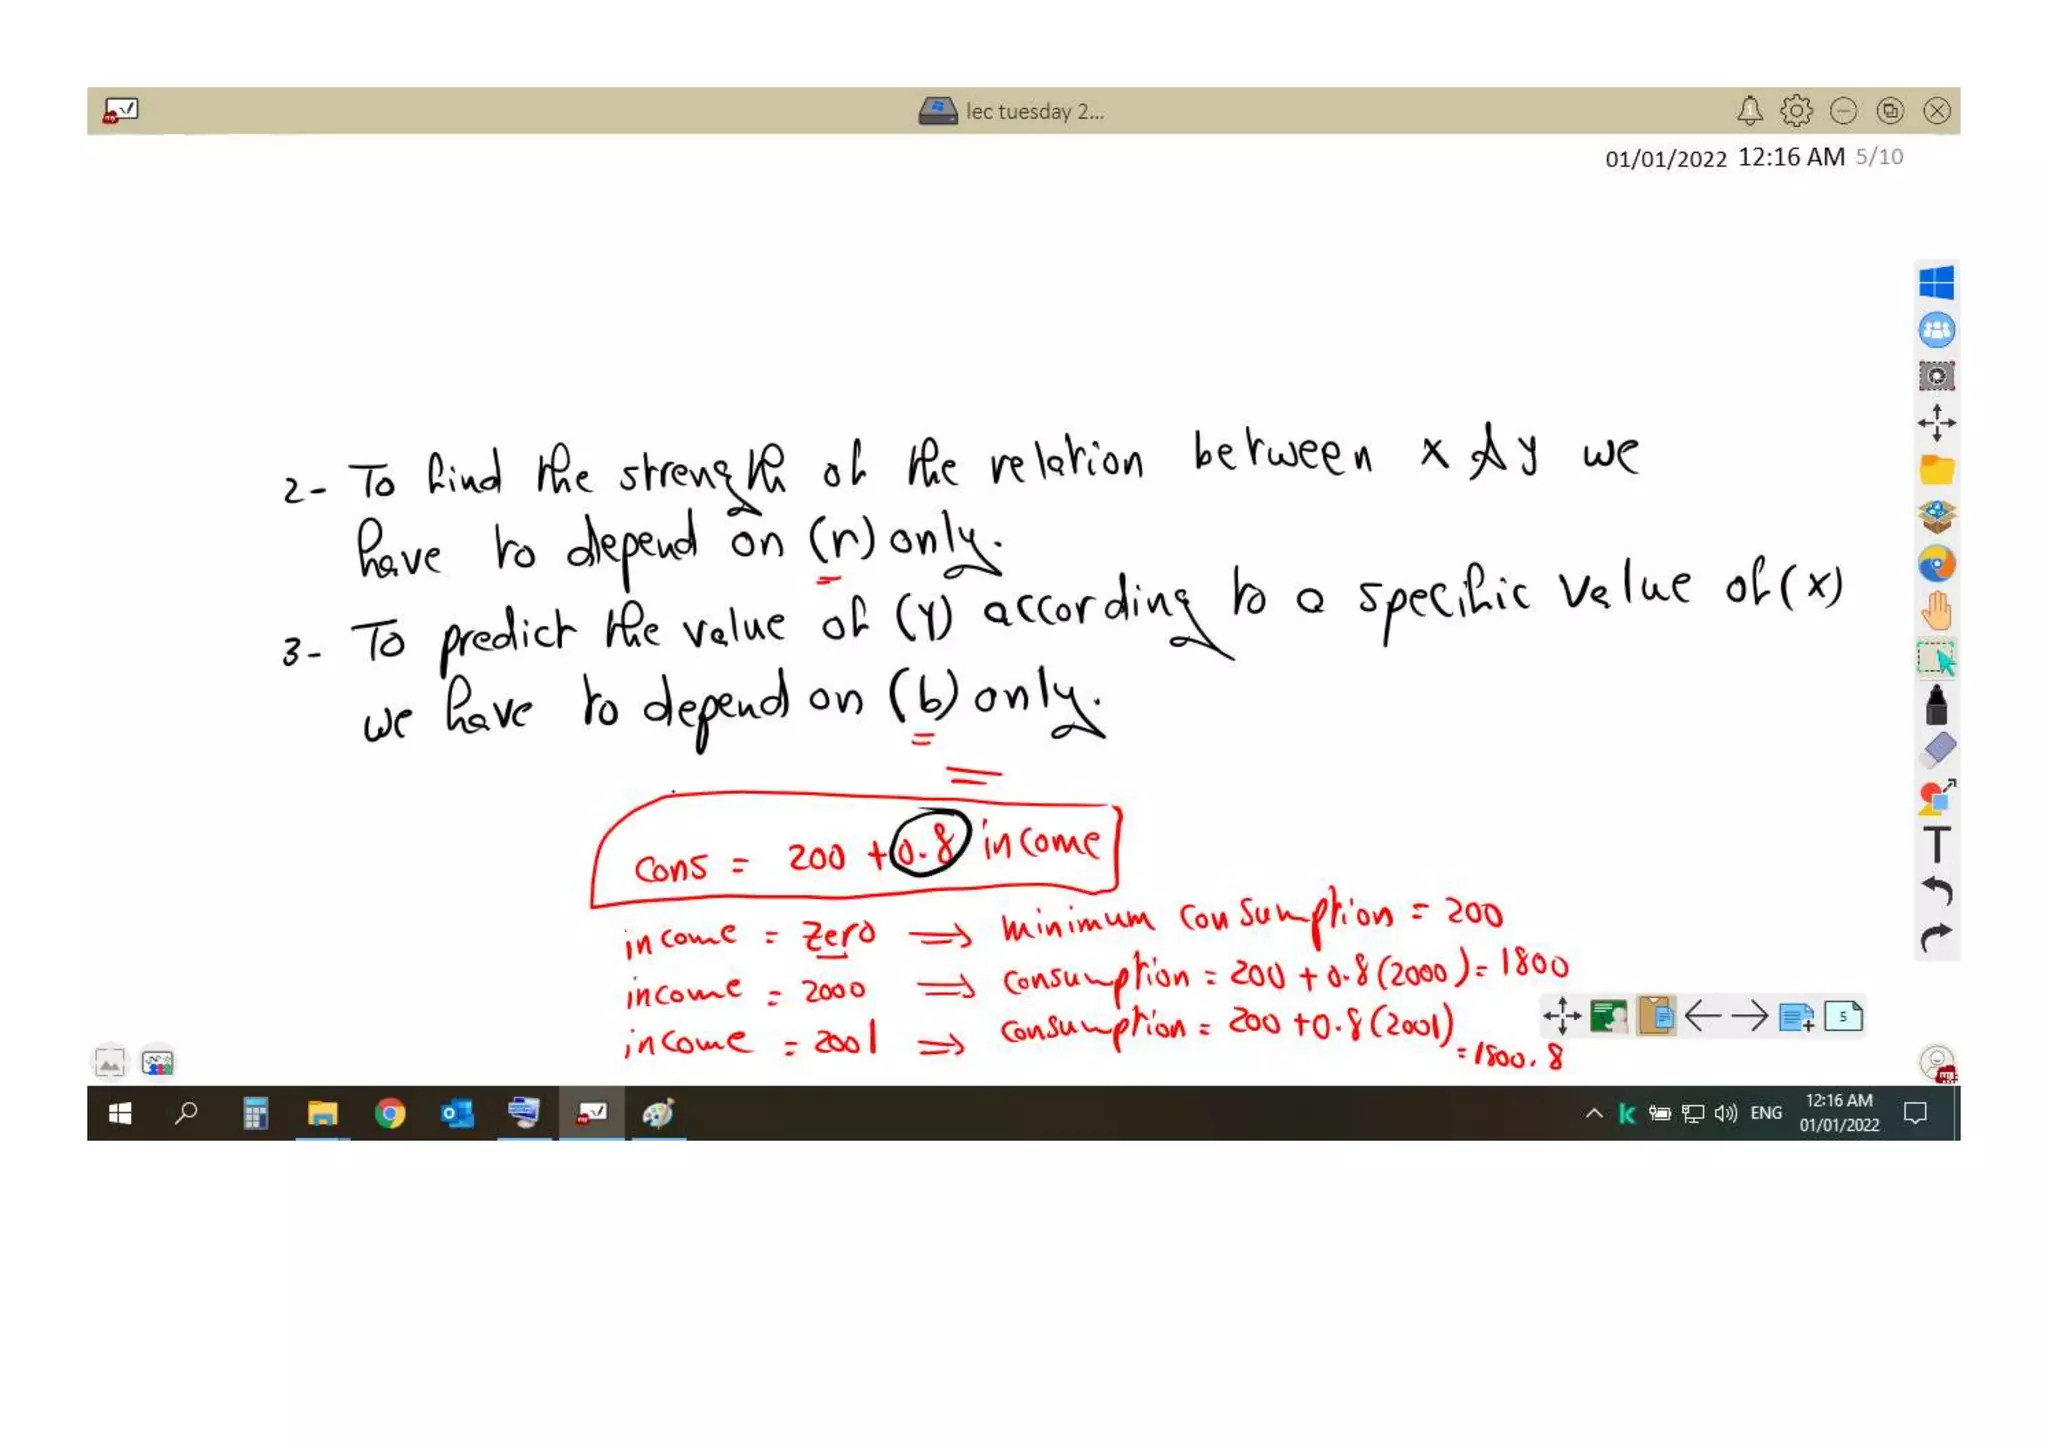 lec tuesday 2...
01/01/2022 12:16 AM 5/10
2- To find the strength of the relation between x & y we
have to depend on (r) only.
3- To predict the value of (Y) according to a specific value of (x)
we have to depend on (b) only.
Cons = 200 + 0.8 income
income = zero ⇒ minimum consumption = 200
income = 2000 ⇒ consumption = 200 + 0.8 (2000) = 1800
income = 2001 ⇒ consumption = 200 + 0.8 (2001)
= 1800.8
5
T
ENG
12:16 AM
01/01/2022